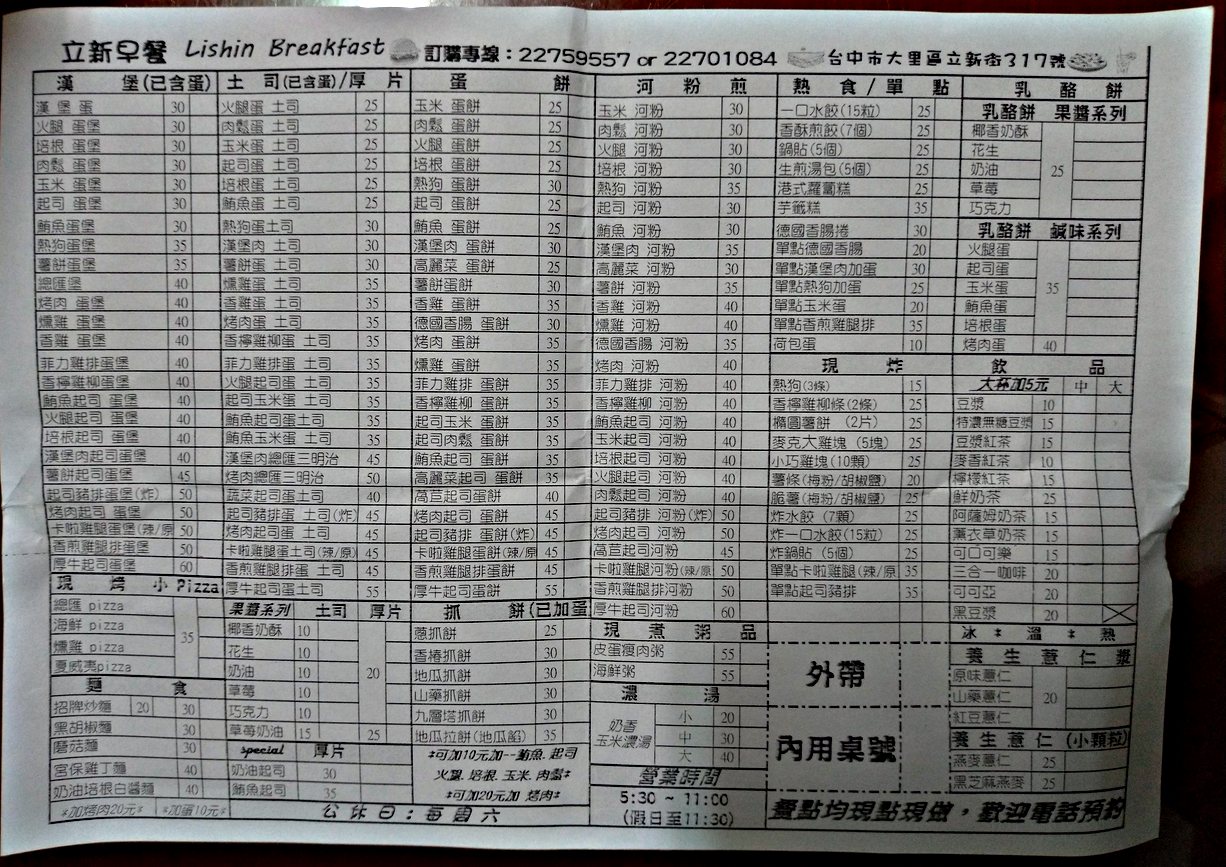 立新早餐 Lishin Breakfast 訂購專線：22759557 or 22701084 台中市大里區立新街317號
漢 堡(已含蛋)
漢堡蛋 30
火腿 蛋堡 30
培根 蛋堡 30
肉鬆 蛋堡 30
玉米 蛋堡 30
起司 蛋堡 30
鮪魚蛋堡 30
熱狗蛋堡 35
薯餅蛋堡 35
總匯堡 40
烤肉 蛋堡 40
燻雞 蛋堡 40
香雞 蛋堡 40
菲力雞排蛋堡 40
香檸雞柳蛋堡 40
鮪魚起司 蛋堡 40
火腿起司 蛋堡 40
培根起司 蛋堡 40
漢堡肉起司蛋堡 40
薯餅起司蛋堡 45
起司豬排蛋堡(炸) 50
烤肉起司 蛋堡 50
卡啦雞腿蛋堡(辣/原 50
香煎雞腿排蛋堡 50
厚牛起司蛋堡 60
現 烤 小 Pizza
總匯 pizza
海鮮 pizza
燻雞 pizza
夏威夷pizza
35
麵 食
招牌炒麵 20 30
黑胡椒麵 30
蘑菇麵 30
宮保雞丁麵 40
奶油培根白醬麵 40
*加烤肉20元* *加蛋10元*
土 司(已含蛋)/厚 片
火腿蛋 土司 25
肉鬆蛋 土司 25
玉米蛋 土司 25
起司蛋 土司 25
培根蛋 土司 25
鮪魚蛋 土司 25
熱狗蛋土司 30
漢堡肉 土司 30
薯餅蛋 土司 30
燻雞蛋 土司 35
香雞蛋 土司 35
烤肉蛋 土司 35
香檸雞柳蛋 土司 35
菲力雞排蛋 土司 35
火腿起司蛋 土司 35
起司玉米蛋 土司 35
鮪魚起司蛋土司 35
鮪魚玉米蛋 土司 35
漢堡蛋肉總匯三明治 45
烤肉總匯三明治 50
蔬菜起司蛋土司 40
起司豬排蛋 土司(炸) 45
烤肉起司蛋 土司 45
卡啦雞腿蛋土司(辣/原) 45
香煎雞排蛋 土司 45
厚牛起司蛋土司 55
果醬系列 土司 厚片
椰香奶酥 10
花生 10
奶油 10
草莓 10
巧克力 10
20
草莓奶油 15 25
special 厚片
奶油起司 30
鮪魚起司 35
公休日：每周六
蛋 餅
玉米 蛋餅 25
肉鬆 蛋餅 25
火腿 蛋餅 25
培根 蛋餅 25
熱狗 蛋餅 30
起司 蛋餅 25
鮪魚 蛋餅 25
漢堡肉 蛋餅 30
高麗菜 蛋餅 25
薯餅蛋餅 30
香雞 蛋餅 35
德國香腸 蛋餅 30
烤肉 蛋餅 35
燻雞 蛋餅 35
菲力雞排 蛋餅 35
香檸雞柳 蛋餅 35
起司玉米 蛋餅 35
起司肉鬆 蛋餅 35
鮪魚起司 蛋餅 35
高麗菜起司 蛋餅 35
萵苣起司蛋餅 40
烤肉起司 蛋餅 45
起司豬排 蛋餅(炸) 45
卡啦雞腿蛋餅(辣/原 45
香煎雞腿排蛋餅 45
厚牛起司蛋餅 55
抓 餅(已加蛋
蔥抓餅 25
香椿抓餅 30
地瓜抓餅 30
山藥抓餅 30
九層塔抓餅 30
地瓜拉餅(地瓜餡) 35
*可加10元加--鮪魚.起司
火腿.培根.玉米.肉鬆*
*可加20元加 烤肉*
河 粉 煎
玉米 河粉 30
肉鬆 河粉 30
火腿 河粉 30
培根 河粉 30
熱狗 河粉 35
起司 河粉 30
鮪魚 河粉 30
漢堡肉 河粉 35
高麗菜 河粉 30
薯餅 河粉 35
香雞 河粉 40
燻雞 河粉 40
德國香腸 河粉 35
烤肉 河粉 40
菲力雞排 河粉 40
香檸雞柳 河粉 40
鮪魚起司 河粉 40
玉米起司 河粉 40
培根起司 河粉 40
火腿起司 河粉 40
肉鬆起司 河粉 40
起司豬排 河粉(炸) 50
烤肉起司 河粉 50
萵苣起司河粉 45
卡啦雞腿河粉(辣/原 50
香煎雞腿排河粉 50
厚牛起司河粉 60
現 煮 粥 品
皮蛋瘦肉粥 55
海鮮粥 55
濃 湯
奶香
玉米濃湯
小 20
中 30
大 40
營業時間
5:30 ~ 11:00
(假日至11:30)
熱 食 / 單 點
一口水餃(15粒) 25
香酥煎餃(7個) 25
鍋貼(5個) 25
生煎湯包(5個) 25
港式蘿蔔糕 25
芋籤糕 35
德國香腸捲 30
單點德國香腸 20
單點漢堡肉加蛋 30
單點熱狗加蛋 25
單點玉米蛋 20
單點香煎雞腿排 35
荷包蛋 10
現 炸
熱狗(3條) 15
香檸雞柳條(2條) 25
橢圓薯餅 (2片) 25
麥克大雞塊 (5塊) 25
小巧雞塊(10顆) 25
薯條(梅粉/胡椒鹽) 20
脆薯(梅粉/胡椒鹽) 25
炸水餃 (7顆) 25
炸一口水餃(15粒) 25
炸鍋貼 (5個) 25
單點卡啦雞腿(辣/原 35
單點起司豬排 35
外帶
內用桌號
乳 酪 餅
乳酪餅 果醬系列
椰香奶酥
花生
奶油
草莓
巧克力
25
乳酪餅 鹹味系列
火腿蛋
起司蛋
玉米蛋
鮪魚蛋
培根蛋
35
烤肉蛋 40
飲 品
大杯加5元 中 大
豆漿 10
特濃無糖豆漿 15
豆漿紅茶 15
麥香紅茶 10
檸檬紅茶 15
鮮奶茶 25
阿薩姆奶茶 15
薰衣草奶茶 15
可口可樂 15
三合一咖啡 20
可可亞 20
黑豆漿 20
冰 * 溫 * 熱
養 生 薏 仁 漿
原味薏仁
山藥薏仁
紅豆薏仁
20
養 生 薏 仁 (小顆粒)
燕麥薏仁 25
黑芝麻燕麥 25
餐點均現點現做，歡迎電話預約